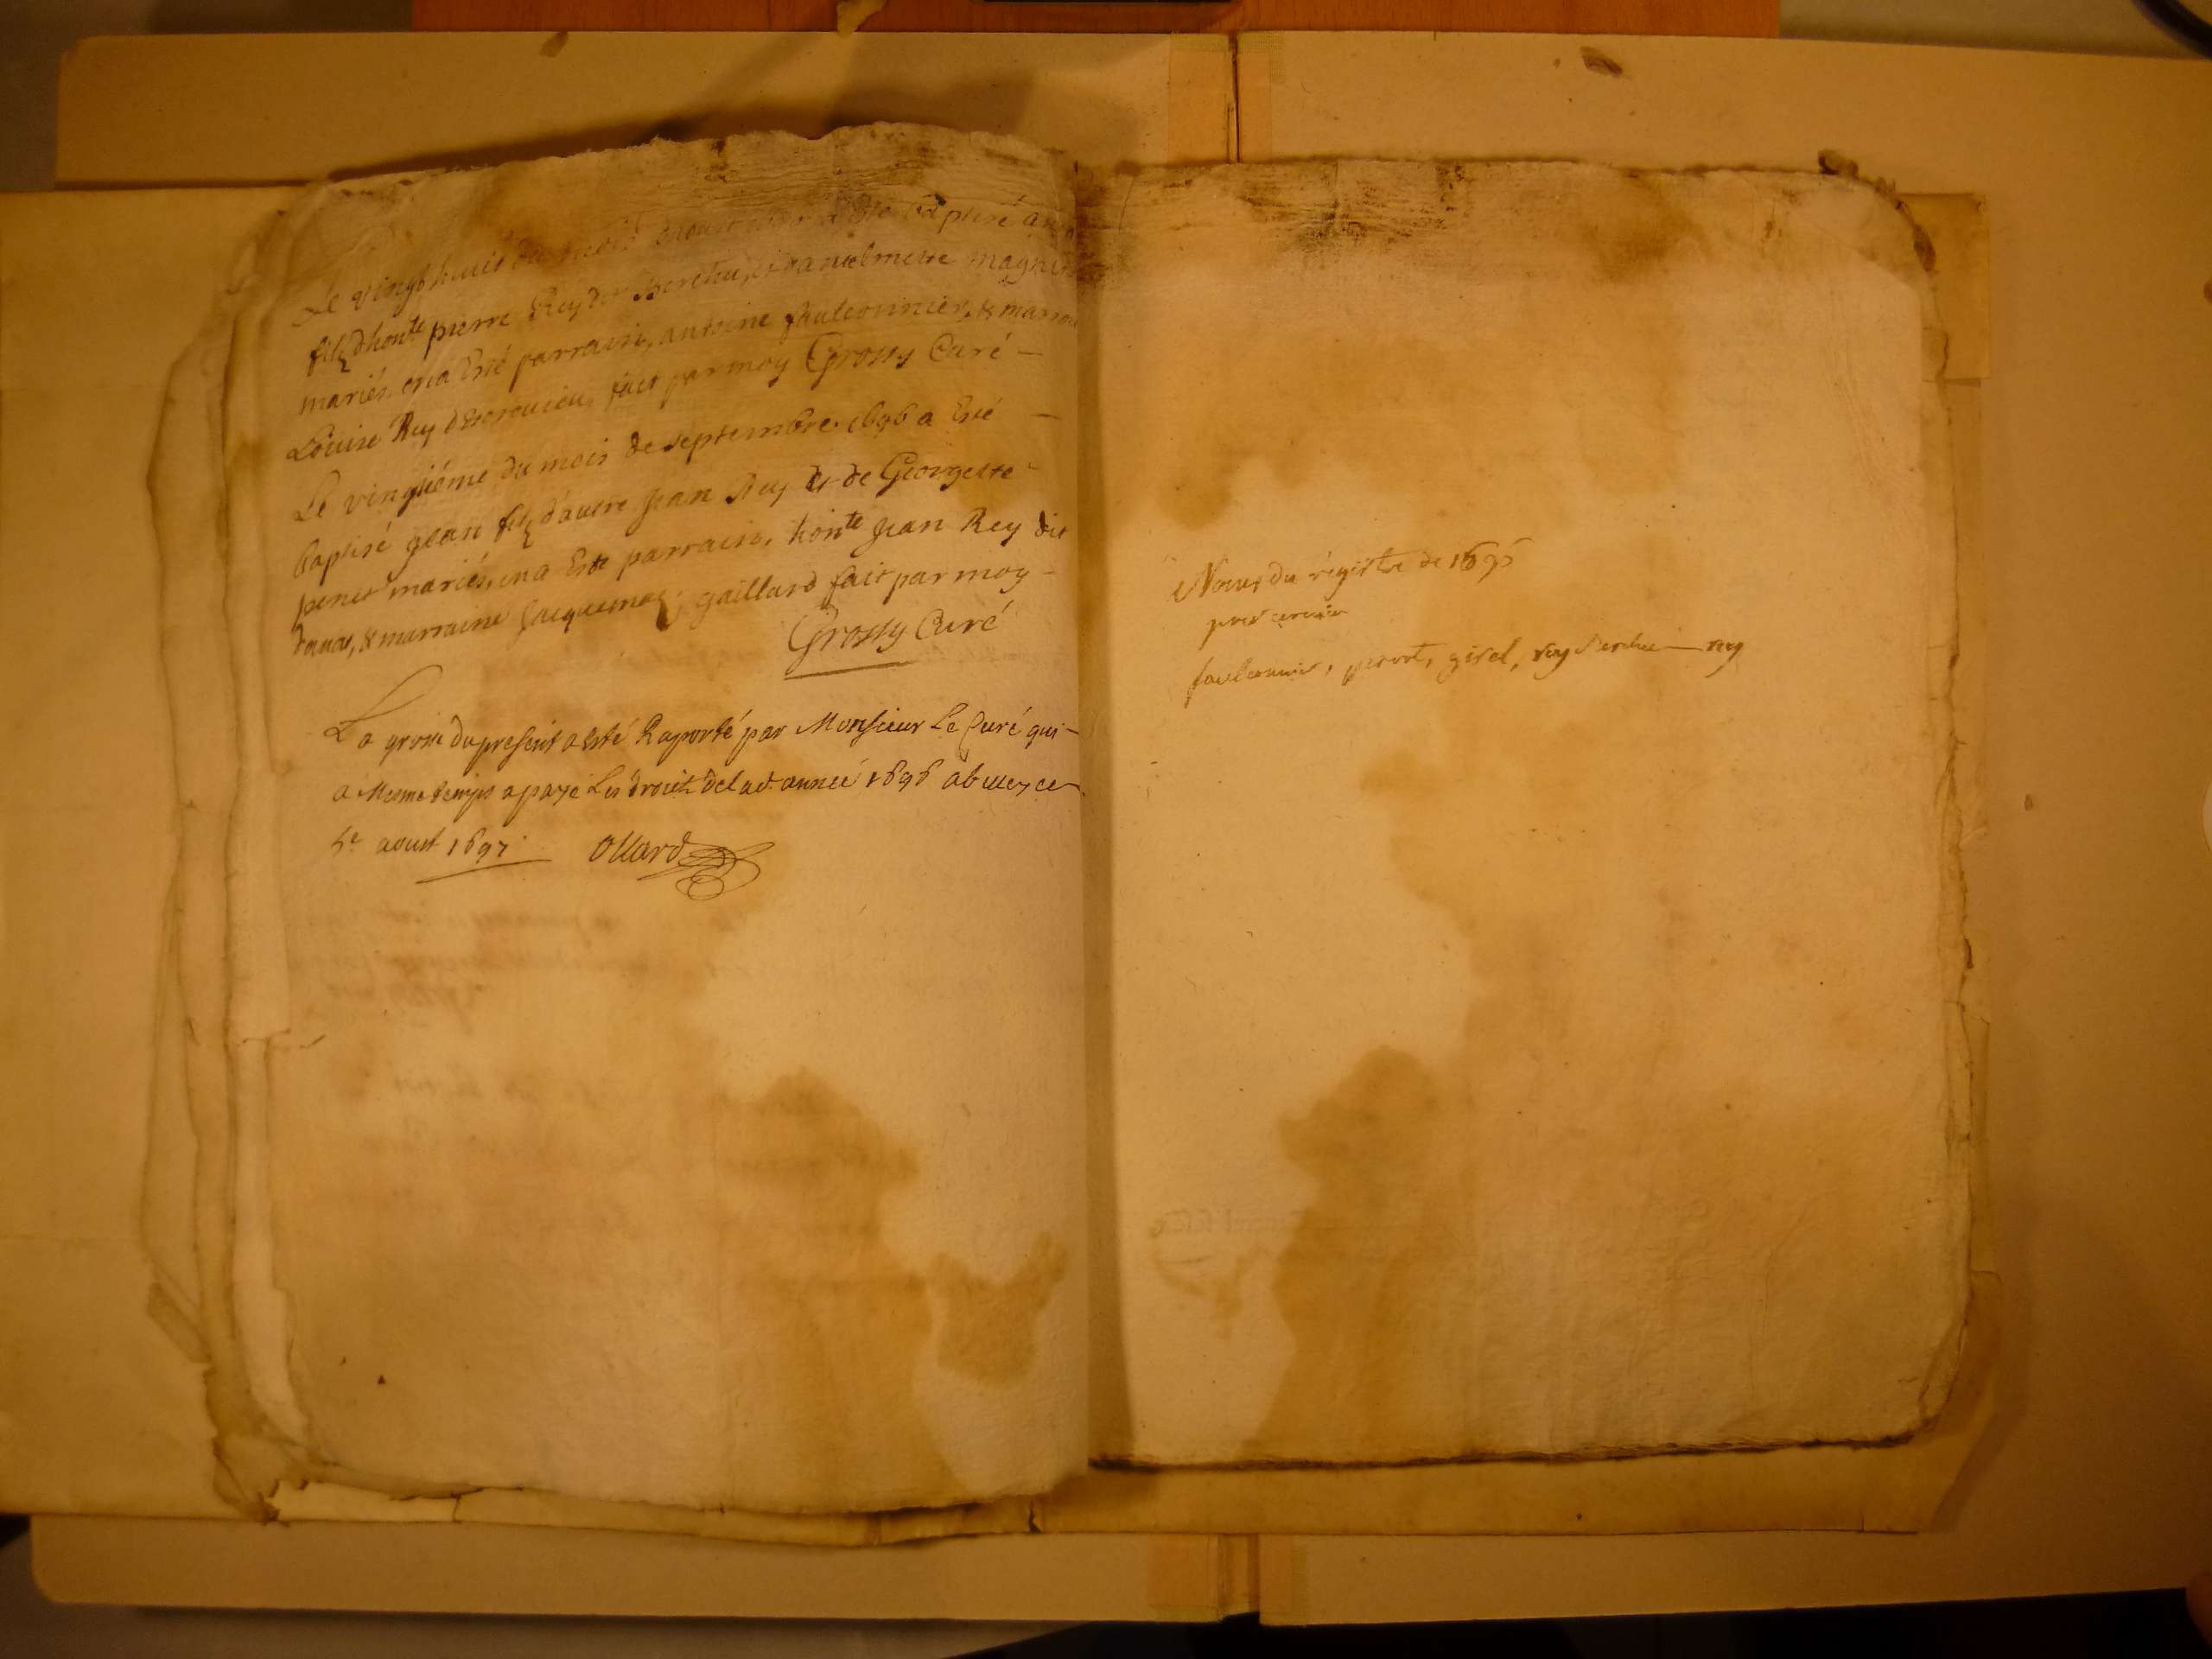 Le vingt huit du mois a esté baptisé
filz dhonte pierre Rey dit Berthu, et danthelmette magnin
mariés, en a Esté parrain, antoine faulconnier, & marrai
Louise Rey fait par moy Grossy Curé —
Le vingtiéme du mois de septembre 1696 a Esté —
baptisé jean filz d'autre jean Rey et de Georgette
mariés, en a Esté parrain, honte jean Rey dit
& marraine gaillard fait par moy -
Grossy Curé
La grosse du present a Esté Raporté par Monsieur Le Curé qui -
a Mesme temps a payé Les droits de lad. année 1696 a belley ce
5e aoust 1697 Ollard
Noms du régistre de 1695
faulconnier, perrot, girel, rey berthu — rey